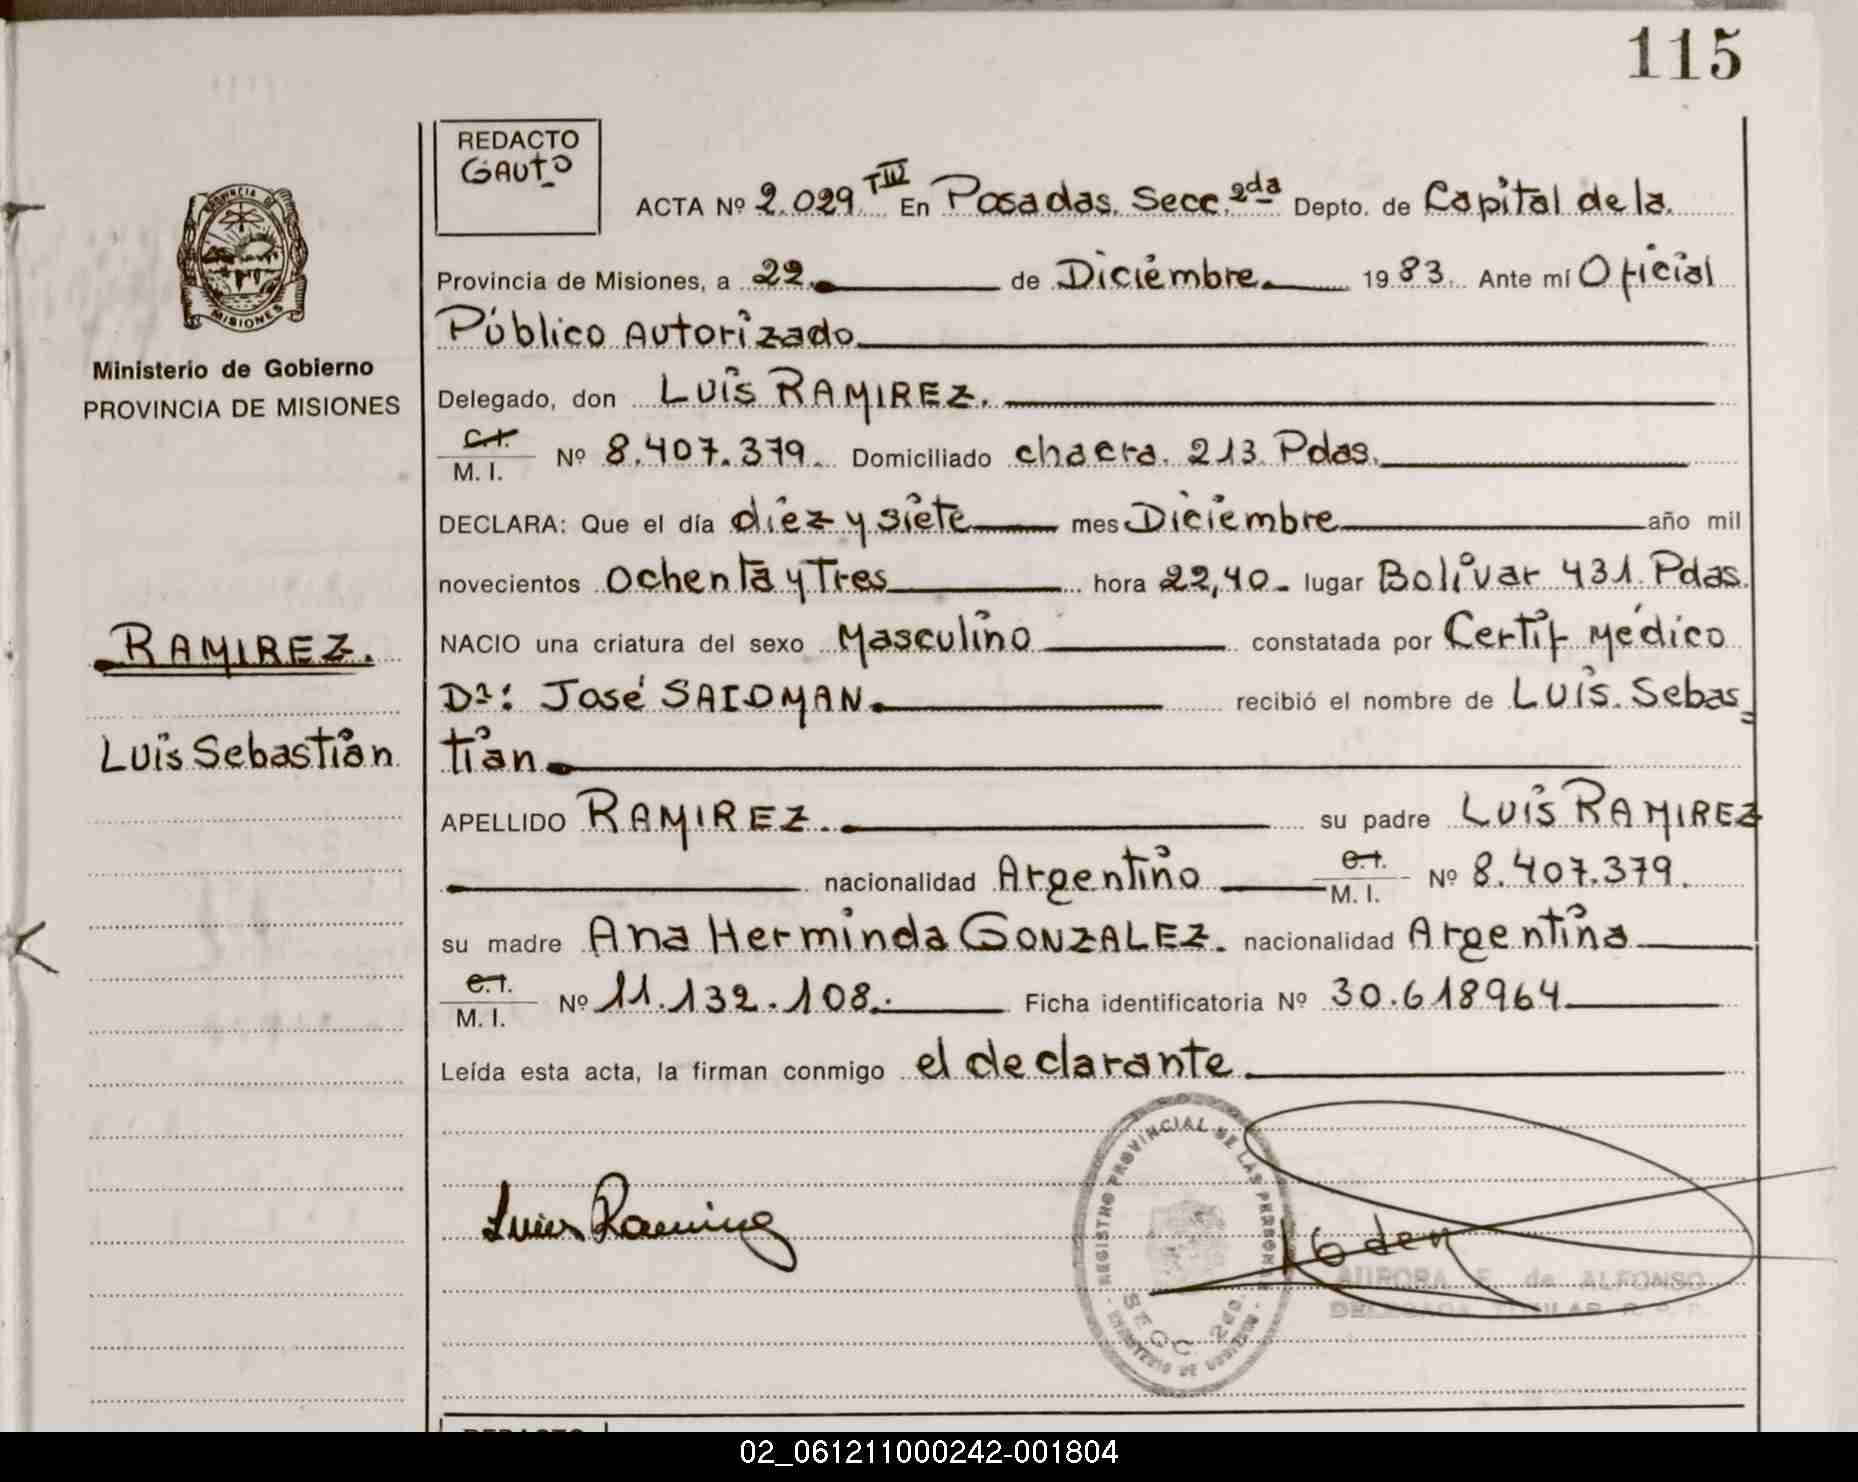 115
REDACTO
GAUTO
ACTA Nº 2.029 TIII En Posadas. Secc. 2da Depto. de Capital de la
Provincia de Misiones, a 22. de Diciembre. 1983. Ante mí Oficial
Público Autorizado
Delegado, don Luis RAMIREZ.
C.I.
M. I. Nº 8.407.379. Domiciliado chacra. 213 Pdas.
DECLARA: Que el día diez y siete mes Diciembre año mil
novecientos Ochenta y Tres hora 22,40 lugar Bolívar 431. Pdas.
NACIO una criatura del sexo Masculino constatada por Certif Médico
Dr: José SAIDMAN. recibió el nombre de Luis. Sebas=
tian
APELLIDO RAMIREZ. su padre Luis RAMIREZ
nacionalidad Argentino C.I.
M. I. Nº 8.407.379.
su madre Ana Herminda GONZALEZ. nacionalidad Argentina
C.I.
M. I. Nº 11.132.108. Ficha identificatoria Nº 30.618964
Leída esta acta, la firman conmigo el declarante
PROVINCIA DE
MISIONES
Ministerio de Gobierno
PROVINCIA DE MISIONES
RAMIREZ.
Luis Sebastian
Luis Ramirez
REGISTRO PROVINCIAL DE LAS PERSONAS
SECC 2da.
MINISTERIO DE GOBIERNO
AURORA E. de ALFONSO
DELEGADA TITULAR R. P. P.
02_061211000242-001804